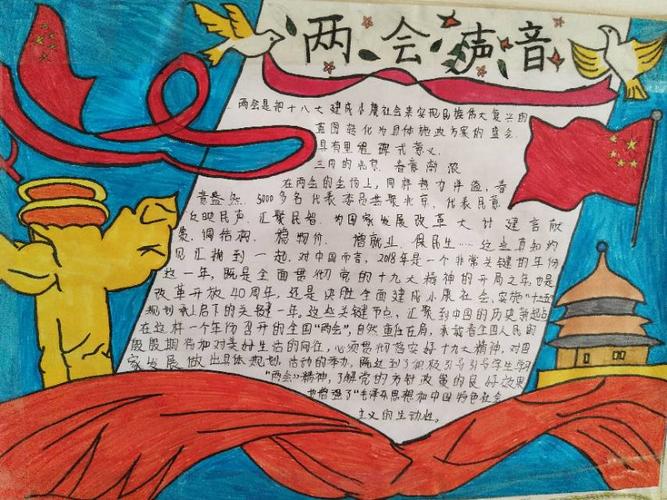 两会声音
两会是把十八大建成小康社会来实现民族伟大复兴的
蓝图转化为具体施政方案的盛会
具有里程碑式意义
三月的北京，春意渐浓
在两会的会场上，同样热力洋溢，春
意盎然．5000多名代表委员共聚北京，代表民意
反映民声，汇聚民智，为国家发展改革大计建言献
策，调结构、稳物价、增就业、保民生……这些真知灼
见汇拥到一起．对中国而言，2018年是一个非常关键的年份
这一年，既是全面贯彻党的十九大精神的开局之年，也是
改革开放40周年，还是决胜全面建成小康社会，实施“十三五”
规划承上启下的关键一年。这些关键节点，汇聚到中国的历史
在这样一个年份召开的全国“两会”，自然重任在肩，承载着全国人民的
殷殷期待和对美好生活的向往，必须贯彻落实好十九大精神，对国
家发展做出具体规划，活动的举办，学生学习
“两会”精神，了解党的方针政策的良好效果
增强了“毛泽东思想和中国特色社会
主义的生动性。